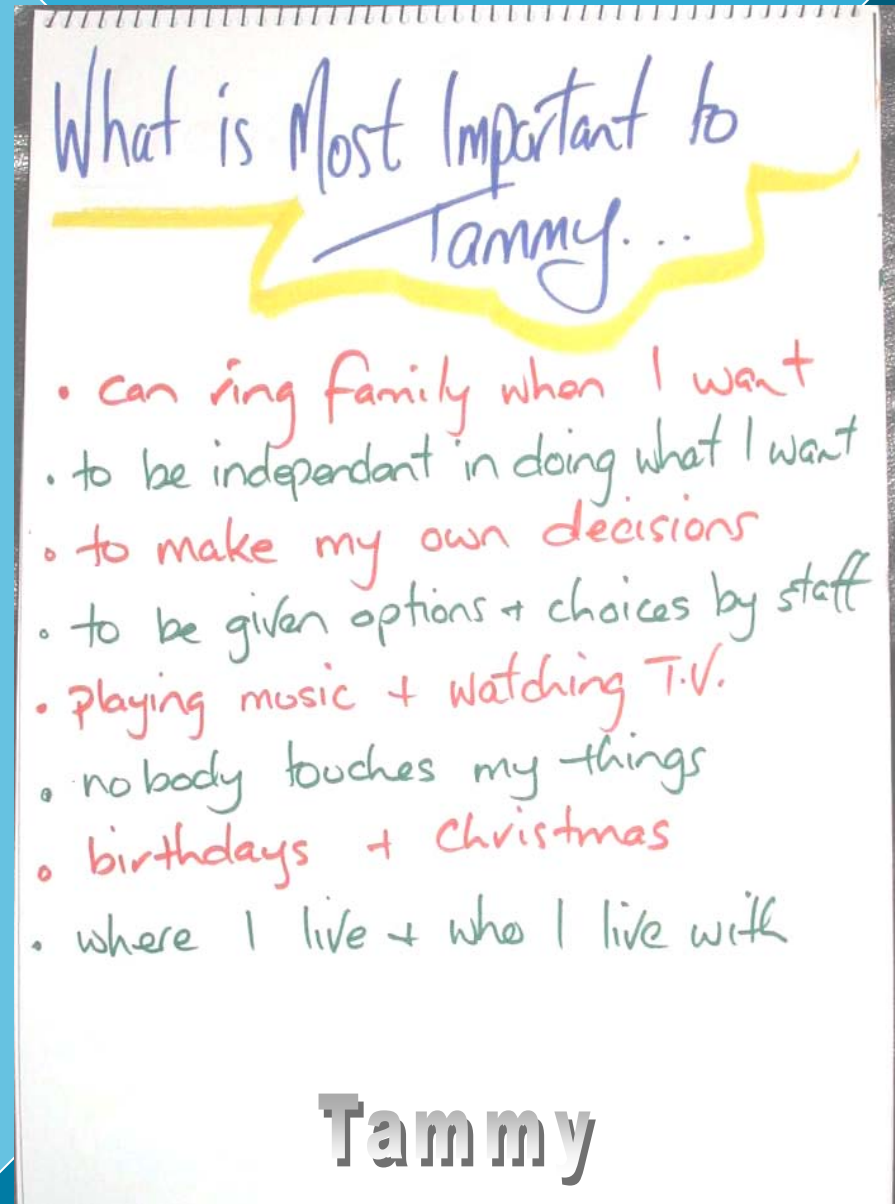 What is Most Important to
Tammy...
• can ring family when I want
• to be independant in doing what I want
• to make my own decisions
• to be given options + choices by staff
• playing music + watching T.V.
• nobody touches my things
• birthdays + Christmas
• where I live + who I live with
Tammy